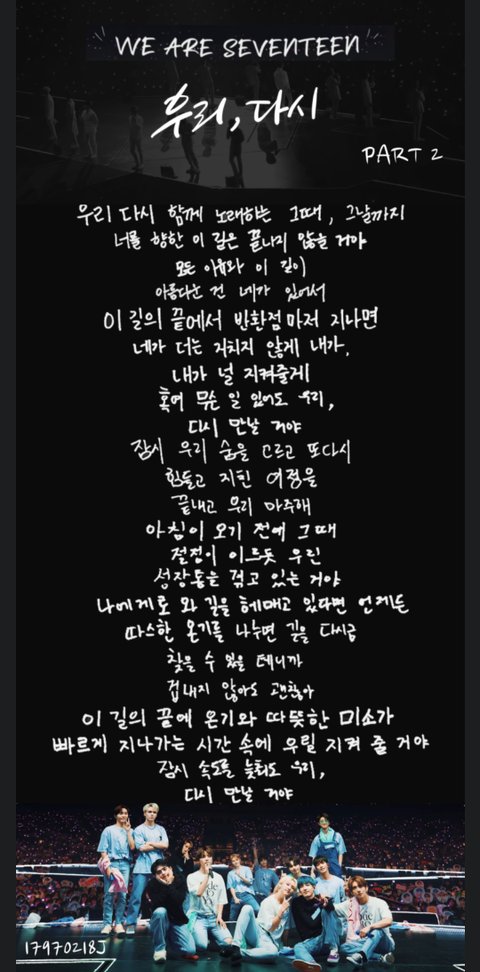 WE ARE SEVENTEEN
우리, 다시
PART 2
우리 다시 함께 노래하는 그때, 그날까지
너를 향한 이 길은 끝나지 않을 거야
모든 이유와 이 길이
아름다운 건 네가 있어서
이 길의 끝에서 반환점마저 지나면
네가 더는 지치지 않게 내가,
내가 널 지켜줄게
혹여 무슨 일 있어도 우리,
다시 만날 거야
잠시 우리 숨을 고르고 또다시
힘들고 지친 여정을
끝내고 우리 마주해
아침이 오기 전에 그때
절정이 이르듯 우린
성장통을 겪고 있는 거야
나에게로 와 길을 헤매고 있다면 언제든
따스한 온기를 나누면 길을 다시금
찾을 수 있을 테니까
겁내지 않아도 괜찮아
이 길의 끝에 온기와 따뜻한 미소가
빠르게 지나가는 시간 속에 우릴 지켜 줄 거야
잠시 속도를 늦춰도 우리,
다시 만날 거야
17970218J